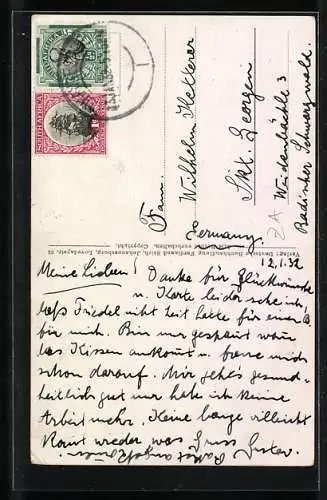 SOUTH AFRICA
SOUTH AFRICA
Fam.
Wilhelm Hetterer
Skt. Georgen
Weidenbächle 3
Badischer Schwarzwald.
Germany.
Verlag: Deutsche Buchhandlung Ferdinand Stich, Johannesburg, Loveday-str.
vorbehalten, Copyright.
12.1.32
Meine Lieben! Danke für Glückwünsche
u. Karte leider scheint,
daß Friedel nicht Zeit hatte für einen
für mich. Bin nur gespannt wann
das Kissen ankommt u. freue mich
schon darauf. Mir geht's gesund-
heitlich gut nur habe ich keine
Arbeit mehr. Keine bange vielleicht
kommt wieder was Gruss Gustav.